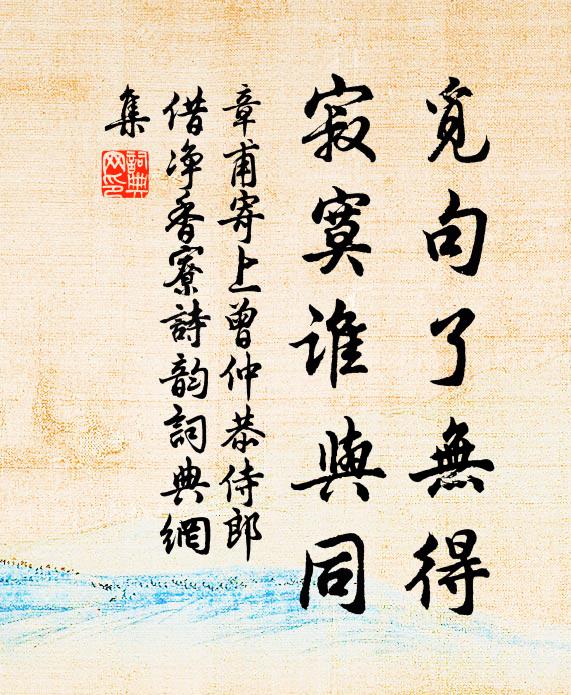 覓句了無得
寂寞誰與同
章甫寄上曾仲恭侍郎
借净香寮詩韵詞典網
集
詞典网印